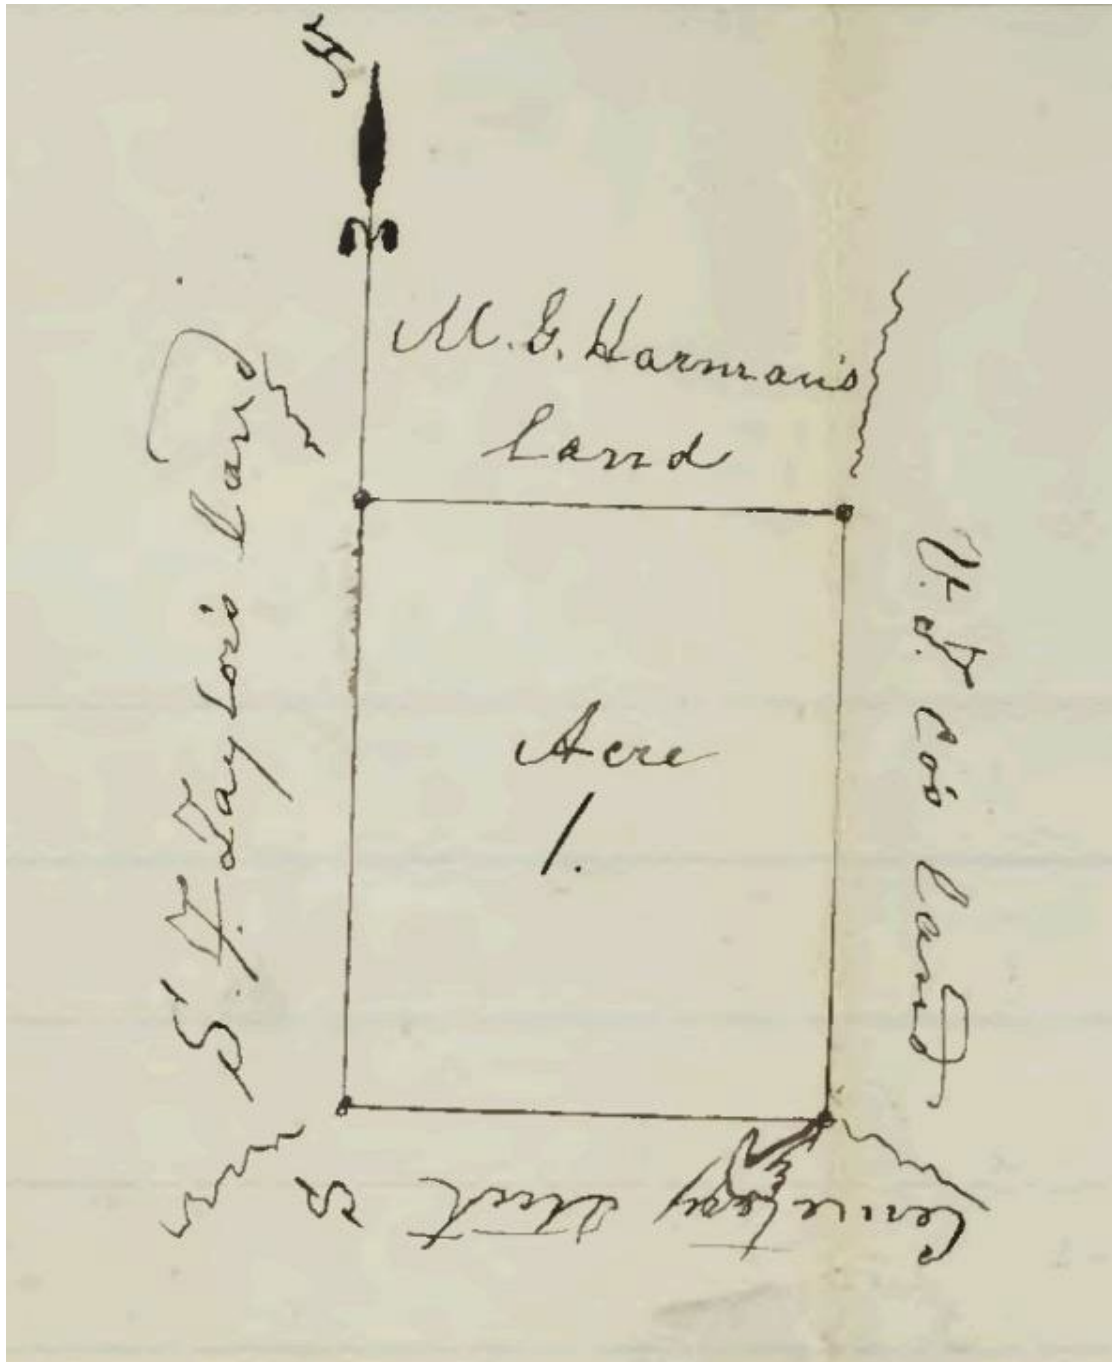 M. G. Harman's
Land
S. T. Taylor's Land
Acre
1.
Co's Land
Cemetery Street
S